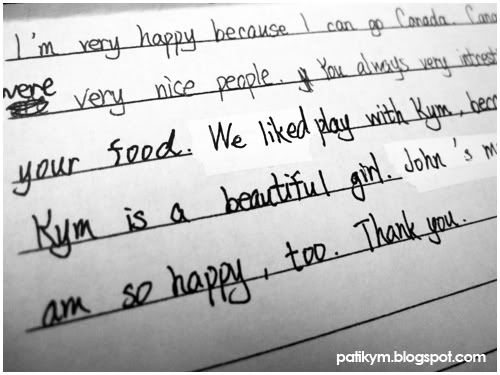 I'm very happy because I can go Canada.
were very nice people. You always very
your food. We liked play with Kym,
Kym is a beautiful girl. John's
am so happy, too. Thank you.
patikym.blogspot.com